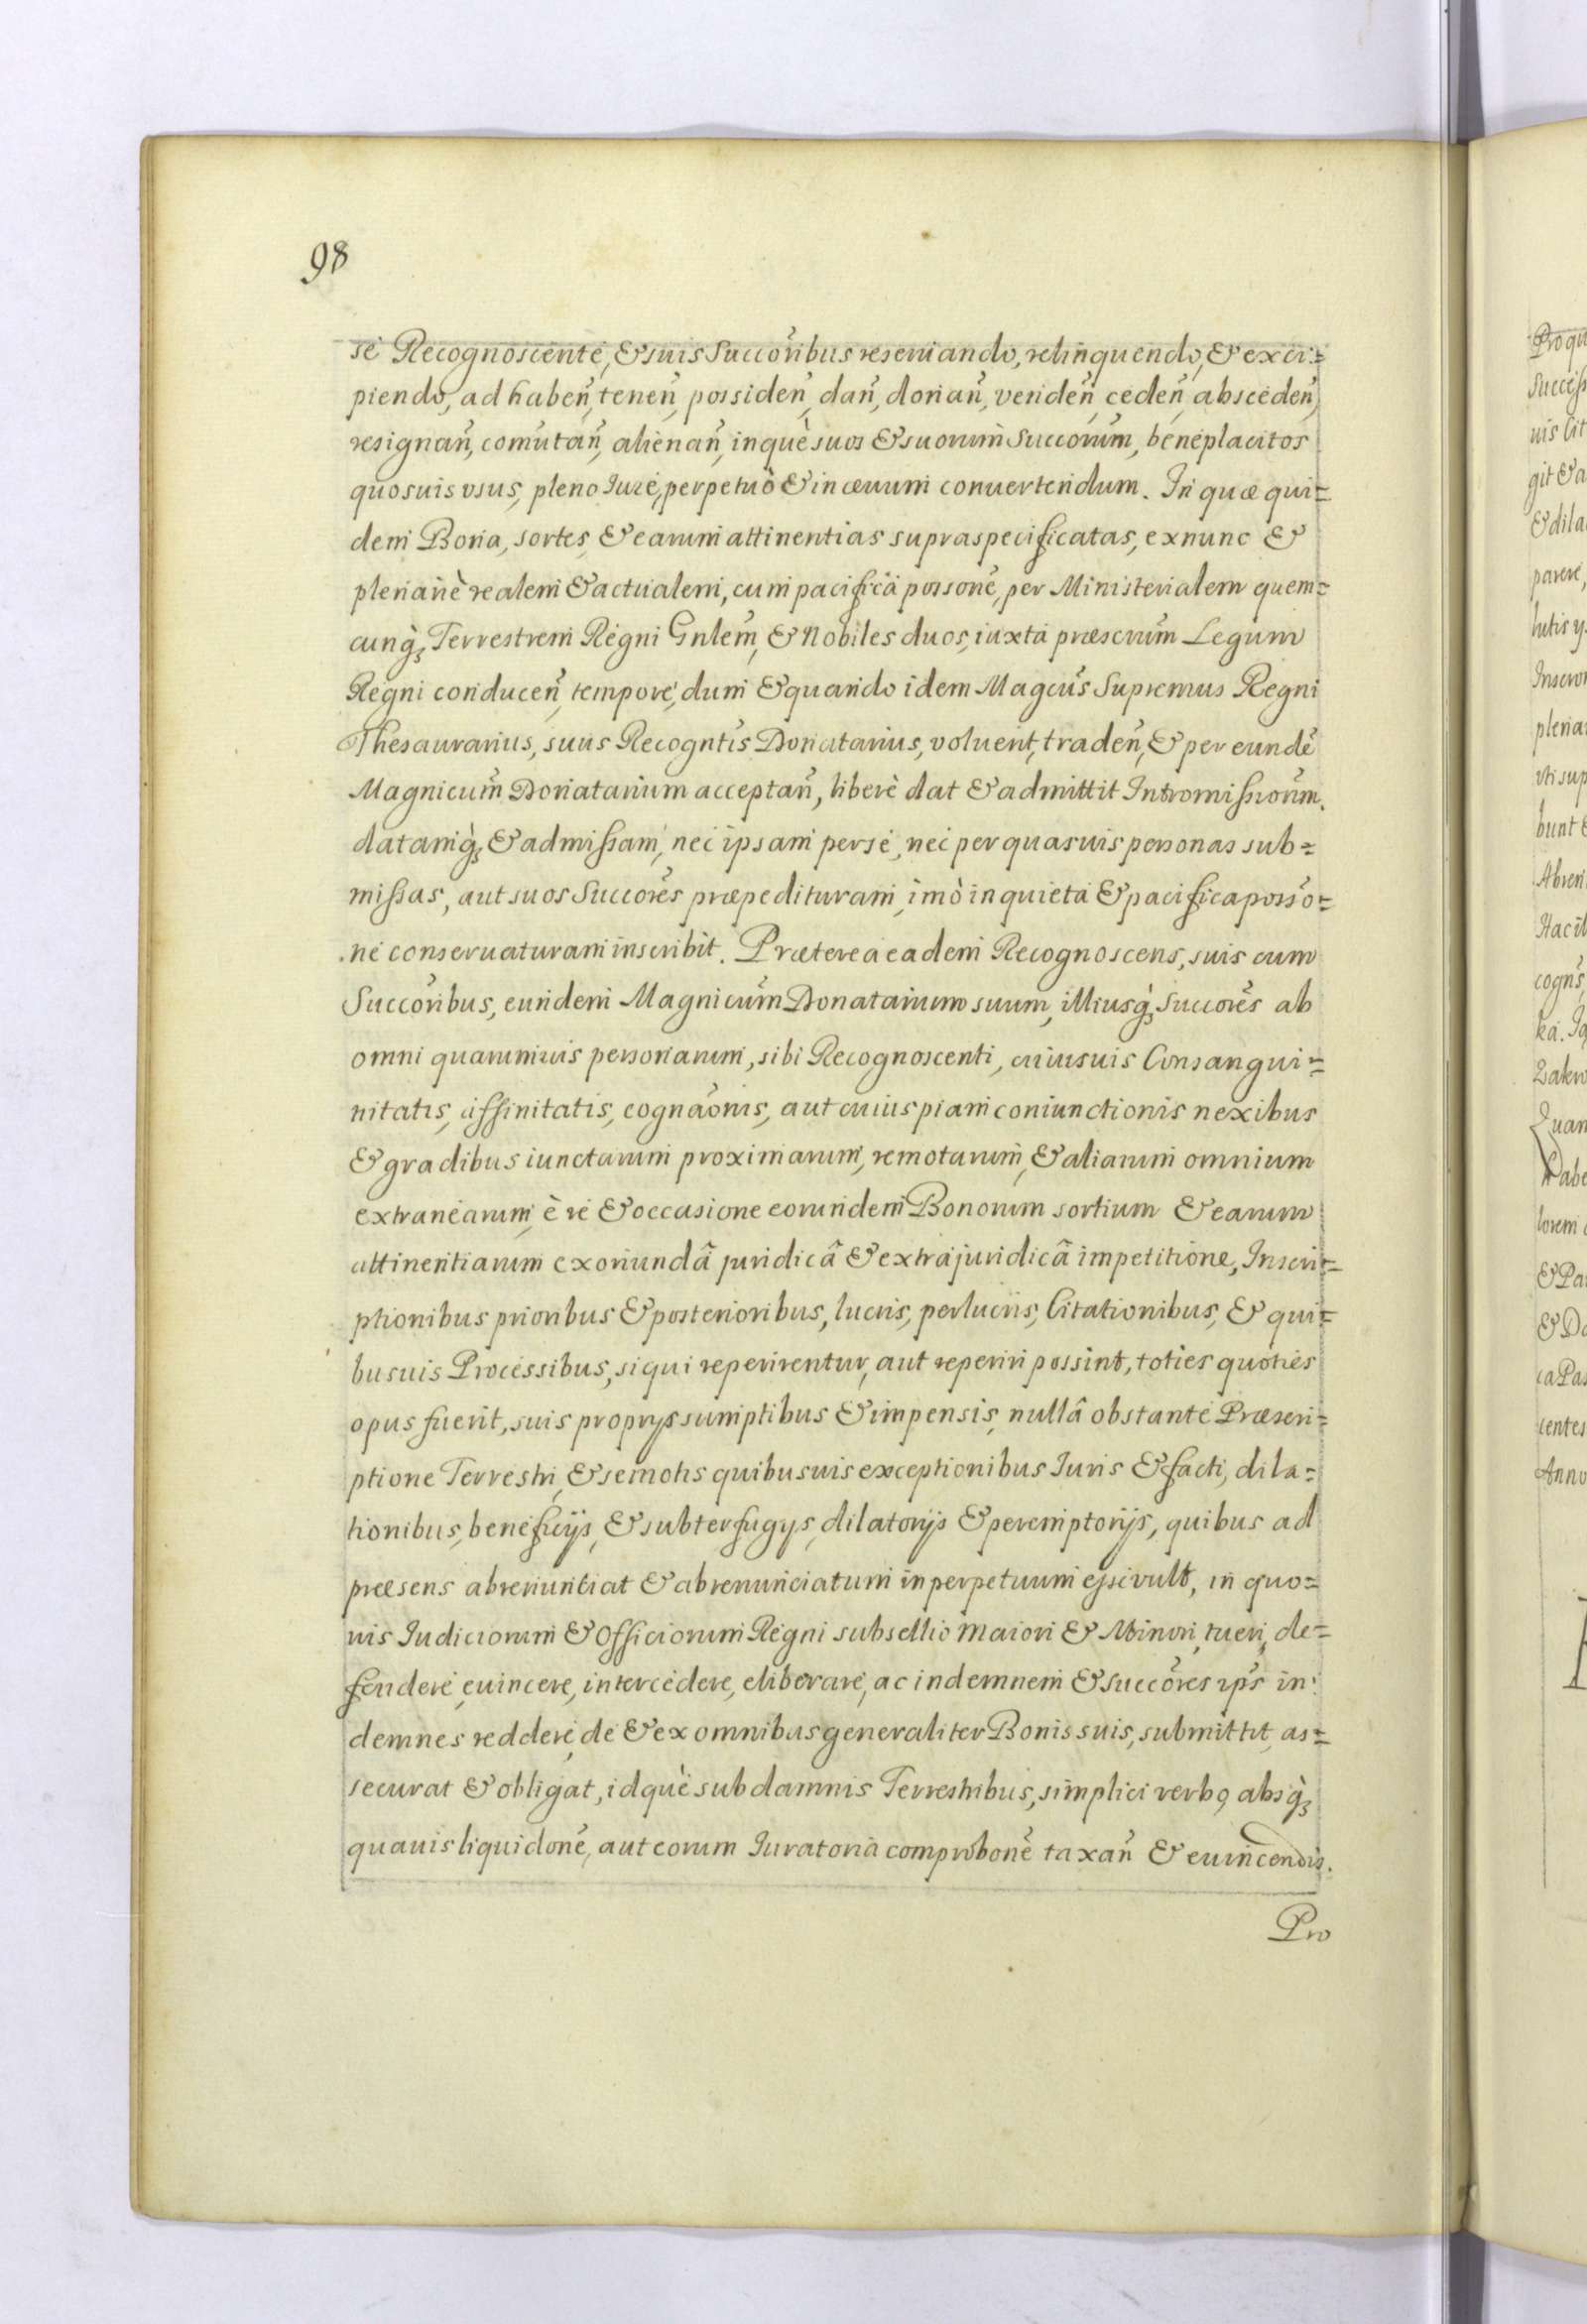 98
se Recognoscente, & suis Succoribus reseruando, relinquendo, & exci=
piendo, ad haben̄, tenen̄, possiden̄, dan̄, donan̄, venden̄, ceden̄, absceden̄,
resignan̄, com̄utan̄, alienan̄, inquè suos & suorum Succorum̄, beneplacitos
quosuis vsus, pleno Iure, perpetuò & in æuum conuertendum. In quæ qui=
dem Bona, sortes, & earum attinentias supraspecificatas, ex nunc &
plenariè realem & actualem, cum pacifica posson̄e, per Ministerialem quem=
cunq̀ȝ Terrestrem Regni Gnlem̄, & Nobiles duos, iuxta præscrum̄ Legum
Regni conducen̄, tempore, dum & quando idem Magcūs Supremus Regni
Thesaurarius, suus Recogntīs Donatarius, voluerit, traden̄, & per eundē
Magnicum̄ Donatarium acceptan̄, liberè dat & admittit Intromissionem̄.
datamq̀ȝ & admissam, nec ipsam per se, nec per quasuis personas sub=
missas, aut suos Succorēs præpedituram, imò in quieta & pacifica posso=
ne conseruaturam inscribit. Præterea eadem Recognoscens, suis cum
Succoribus, eundem Magnicum̄ Donatarium suum, illiusq̀ȝ Succorēs ab
omni quarumuis personarum, sibi Recognoscenti, cuiusuis Consangui=
nitatis, affinitatis, cognaōnis, aut cuiuspiam coniunctionis nexibus
& gradibus iunctarum proximarum, remotarum, & aliarum omnium
extranearum, è re & occasione eorundem Bonorum sortium & earum
attinentiarum exoriundâ juridicâ & extrajuridicâ impetitione, Inscri=
ptionibus prioribus & posterioribus, lucris, perlucris, Citationibus, & qui=
busuis Processibus, si qui reperirentur, aut reperiri possint, toties quoties
opus fuerit, suis proprys sumptibus & impensis, nullâ obstante Præscri=
ptione Terrestri, & semotis quibusuis exceptionibus Iuris & facti, dila=
tionibus, beneficijs, & subterfugys, dilatorijs & peremptorijs, quibus ad
præsens abrenuntiat & abrenunciatum in perpetuum essi vult, in quo=
uis Iudiciorum & Officiorum Regni subsellio Maiori & Minori, tueri, de=
fendere, euincere, intercedere, eliberare, ac indemnem & succores ips̄ in:
demnes reddere, de & ex omnibus generaliter Bonis suis, submittit, as=
securat & obligat, idquè sub damnis Terrestribus, simplici verbo, absq̀ȝ
quauis liquidon̄e, aut eorum Iuratoria compro̅bone taxan̄ & euincendis.
Pro